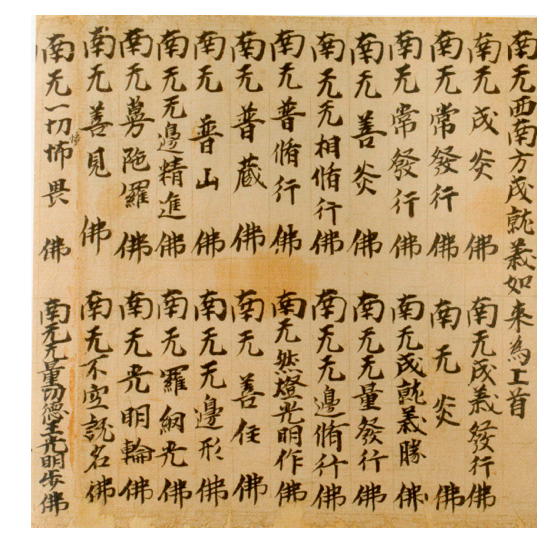 南无西南方成就義如来為上首
南无成炎佛 南无成義發行佛
南无常發行佛 南无炎佛
南无常發行佛 南无成就義勝佛
南无善炎佛 南无无量發行佛
南无无相脩行佛 南无无邊脩行佛
南无普脩行佛 南无然燈光明作佛
南无普藏佛 南无善住佛
南无普山佛 南无无邊形佛
南无无邊精進佛 南无羅網光佛
南无蒡陁羅佛 南无光明輪佛
南无善見佛 南无不空說名佛
南无一切怖畏佛 南无无量功德王光明步佛